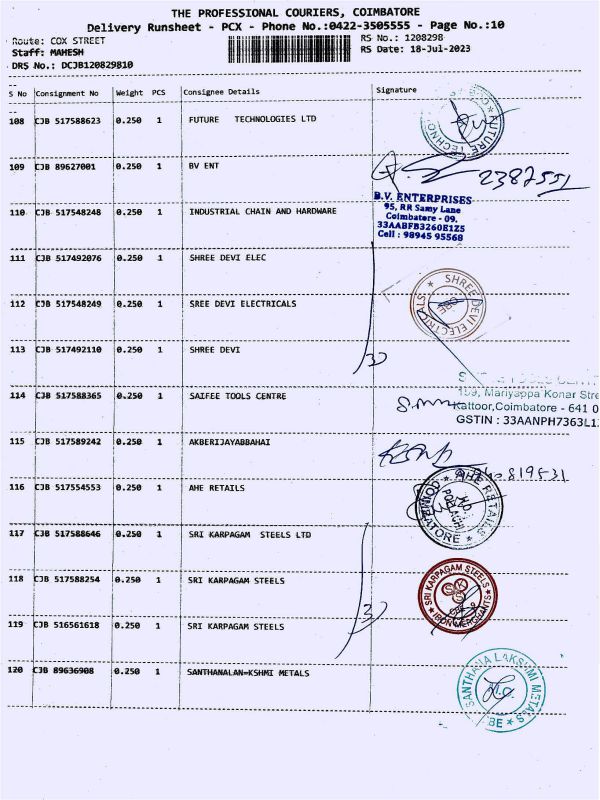 THE PROFESSIONAL COURIERS, COIMBATORE
Delivery Runsheet - PCX - Phone No.:0422-3505555 - Page No.:10
Route: COX STREET
RS No.: 1208298
Staff: MAHESH
RS Date: 18-Jul-2023
DRS No.: DCJB120829810
S No Consignment No Weight PCS Consignee Details Signature
108 CJB 517588623 0.250 1 FUTURE TECHNOLOGIES LTD
FUTURE TECHNO
109 CJB 89627001 0.250 1 BV ENT
2387551
B.V. ENTERPRISES
95, RR Samy Lane
Coimbatore - 09.
33AABFB3260E1Z5
Cell : 98945 95568
110 CJB 517548248 0.250 1 INDUSTRIAL CHAIN AND HARDWARE
111 CJB 517492076 0.250 1 SHREE DEVI ELEC
112 CJB 517548249 0.250 1 SREE DEVI ELECTRICALS
SHREE DEVI ELECTRICALS
CBE
113 CJB 517492110 0.250 1 SHREE DEVI
114 CJB 517588365 0.250 1 SAIFEE TOOLS CENTRE
Mariyappa Konar Stre
Kattoor,Coimbatore - 641 0
GSTIN : 33AANPH7363L1
115 CJB 517589242 0.250 1 AKBERIJAYABBAHAI
116 CJB 517554553 0.250 1 AHE RETAILS
AHE RETAILS
117 CJB 517588646 0.250 1 SRI KARPAGAM STEELS LTD
118 CJB 517588254 0.250 1 SRI KARPAGAM STEELS
SRI KARPAGAM STEELS
IRON MERCHANTS
SKS
119 CJB 516561618 0.250 1 SRI KARPAGAM STEELS
120 CJB 89636908 0.250 1 SANTHANALAN-KSHMI METALS
SANTHANA LAKSHMI METALS
CBE